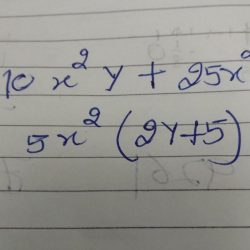 10x²y + 25x²
5x² (2y+5)